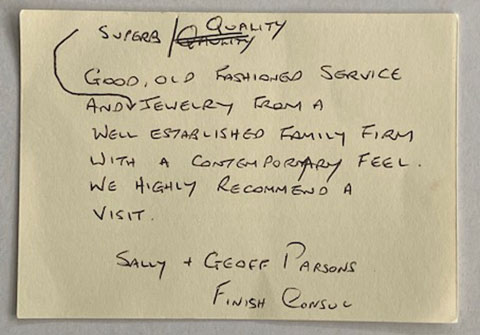 SUPERB / QUALITY
QAULITY
GOOD, OLD FASHIONED SERVICE
AND JEWELRY FROM A
WELL ESTABLISHED FAMILY FIRM
WITH A CONTEMPORARY FEEL.
WE HIGHLY RECOMMEND A
VISIT.
SALLY + GEOFF PARSONS
FINISH CONSUL